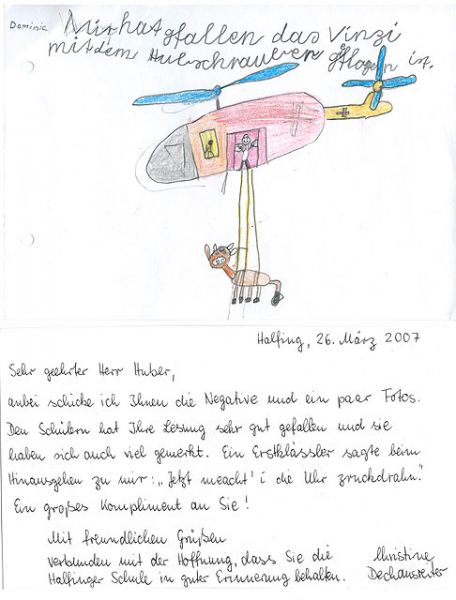 Dominic
Mir hat gfallen das Vinzi
mit dem Hubschrauber gflogen ist.
Halfing, 26. März 2007
Sehr geehrter Herr Huber,
anbei schicke ich Ihnen die Negative und ein paar Fotos.
Den Schülern hat Ihre Lesung sehr gut gefallen und sie
haben sich auch viel gemerkt. Ein Erstklässler sagte beim
Hinausgehen zu mir: „Jetzt meacht' i die Uhr zruckdrahn."
Ein großes Kompliment an Sie!
Mit freundlichen Grüßen
verbunden mit der Hoffnung, dass Sie die
Halfinger Schule in guter Erinnerung behalten.
Christine